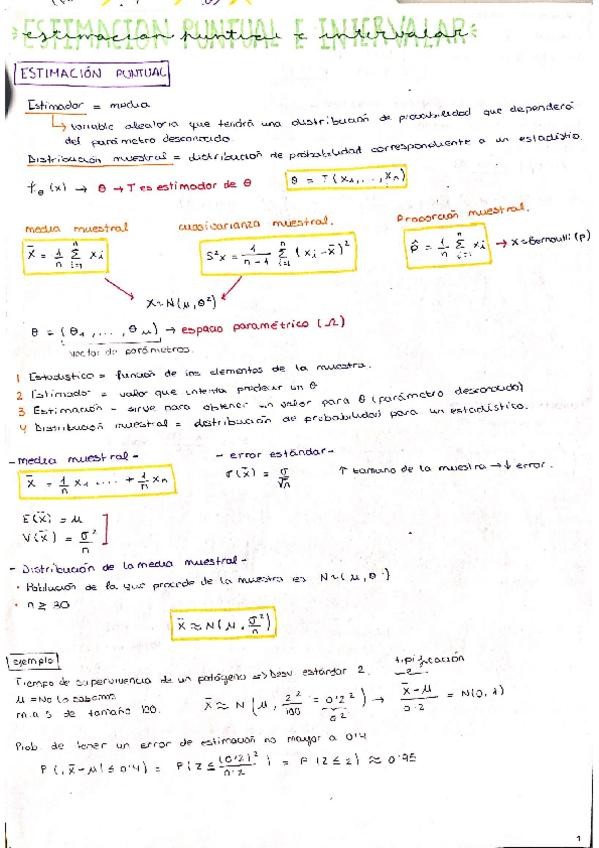 ESTIMACIÓN PUNTUAL E INTERVALAR
estimación puntual e intervalar
ESTIMACIÓN PUNTUAL
Estimador = media
↳ variable aleatoria que tendrá una distribución de probabilidad que dependerá
del parámetro desconocido.
Distribución muestral = distribución de probabilidad correspondiente a un estadístio.
f_θ (x) → θ → T es estimador de θ
θ = T(x₁, ..., xₙ)
media muestral
cuasivarianza muestral.
Proporción muestral.
X̄ = 1/n Σ_{i=1}^{n} xᵢ
S²x = 1/(n-1) Σ_{i=1}^{n} (xᵢ - x̄)²
p̂ = 1/n Σ_{i=1}^{n} xᵢ → X = Bernoulli (p)
X ~ N(μ, θ²)
θ = (θ₁, ..., θ_M) → espacio paramétrico (Ω)
vector de parámetros.
1 Estadístico = función de los elementos de la muestra.
2 Estimador = valor que intenta predecir un θ
3 Estimación - sirve para obtener un valor para θ (parámetro desconocido)
4 Distribución muestral = distribución de probabilidad para un estadístico.
- media muestral -
- error estándar -
X̄ = 1/n x₁ .... + 1/n xₙ
σ(x̄) = σ/√n
↑ tamaño de la muestra → ↓ error.
E(x̄) = μ
V(x̄) = σ²/n
- Distribución de la media muestral -
· Población de la que procede de la muestra es N~(μ, θ )
· n ≥ 30
X̄ ≈ N(μ, σ²/n)
ejemplo
Tiempo de supervivencia de un patógeno => Desv estándar 2.
tipificación
μ = No lo sabemos
m.a.s de tamaño 100.
X̄ ≈ N (μ, 2²/100 = 0'2²) → (X̄ - μ)/0.2 = N(0,1)
σ²
Prob. de tener un error de estimación no mayor a 0'4
P(|x̄ - μ| ≤ 0'4) = P(Z ≤ (0'2)²/0.2) = P(Z ≤ 2) ≈ 0'95
1